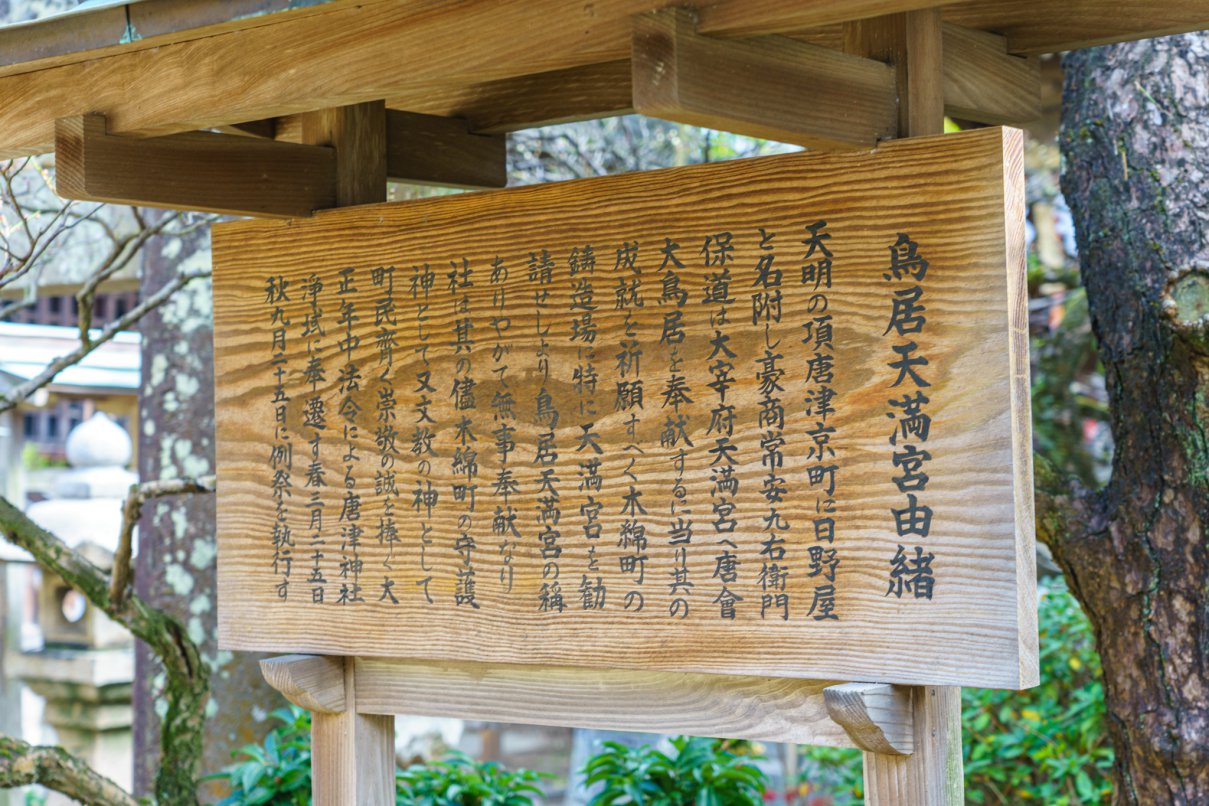 鳥居天満宮由緒
天明の頃唐津京町に日野屋
と名附し豪商常安九右衛門
保道は大宰府天満宮へ唐會
大鳥居を奉献するに当り其の
成就を祈願すべく木綿町の
鋳造場に特に天満宮を勧
請せしより鳥居天満宮の称
ありやがて無事奉献なり
社は其の儘木綿町の守護
神として又文教の神として
町民齊く崇敬の誠を捧ぐ大
正年中法令による唐津神社
浄域に奉遷す春三月二十五日
秋九月二十五日に例祭を執行す